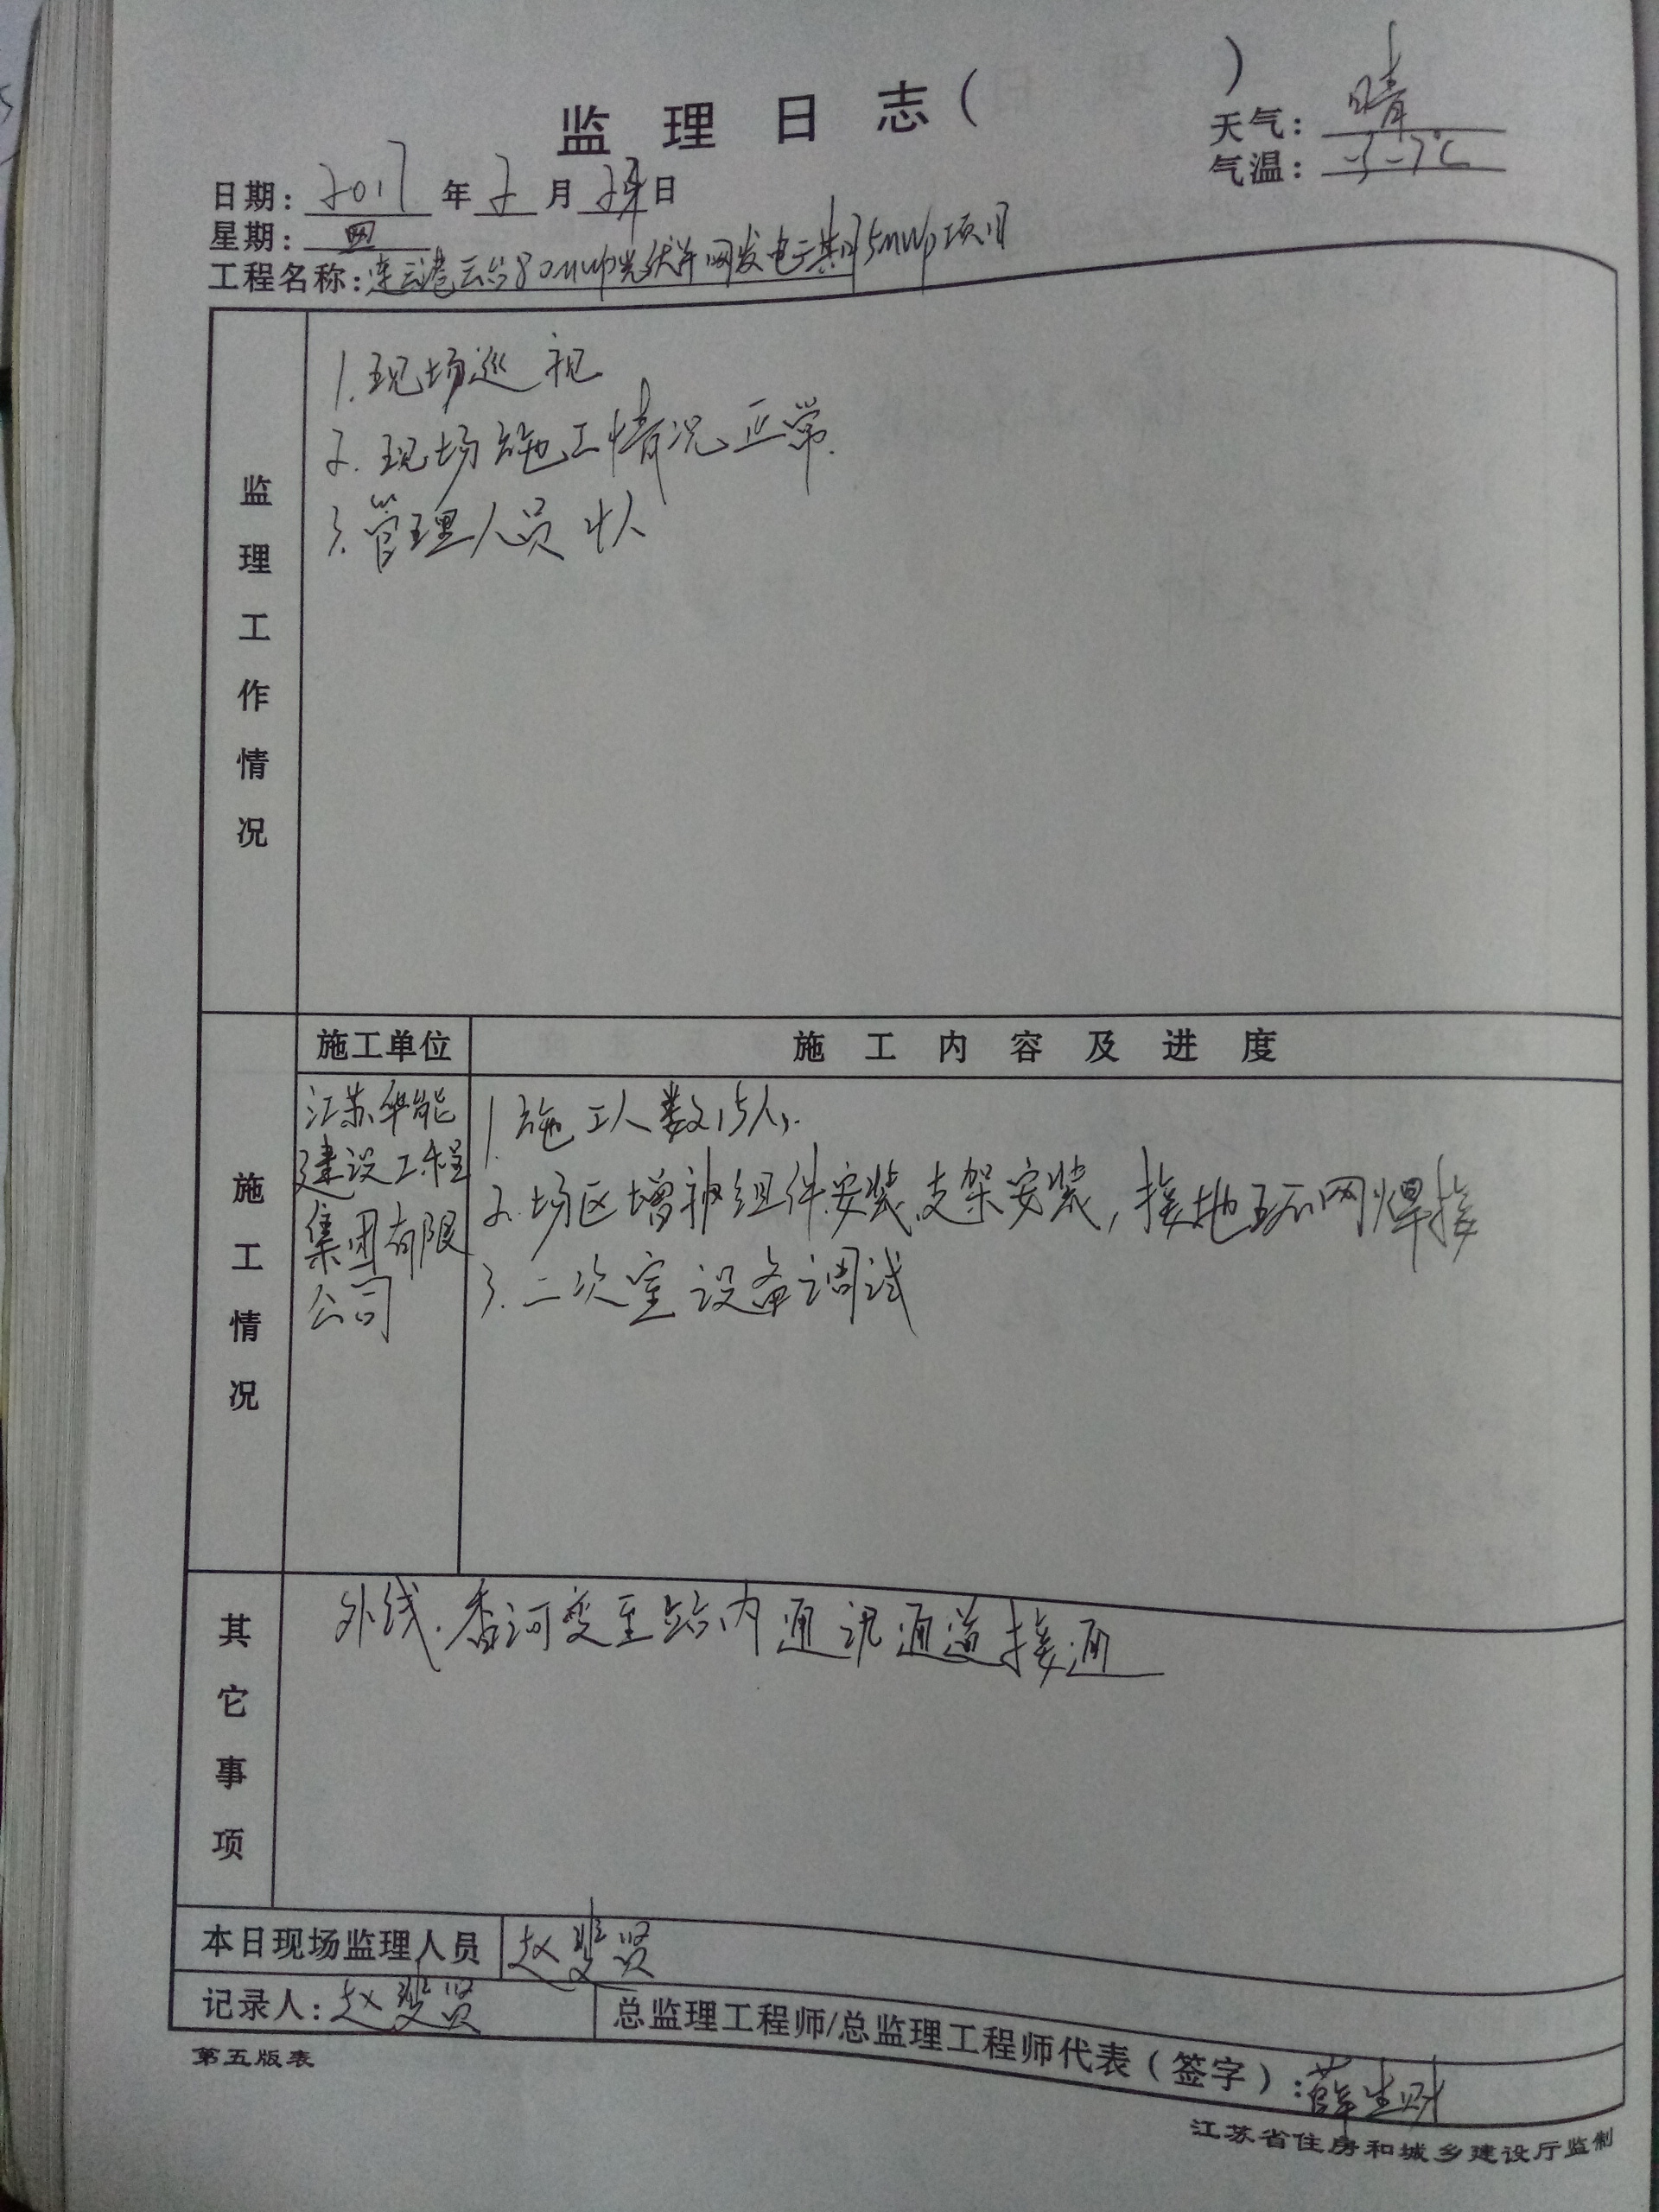 监 理 日 志 ( )
天气: 晴
气温: -3-7℃
日期: 2017 年 2 月 日
星期: 四
工程名称: 连云港云台80MWp光伏并网发电二期35MWp项目
监理工作情况
1.现场巡视
2.现场施工情况正常.
3.管理人员 4人
施工单位
施 工 内 容 及 进 度
施工情况
江苏华能
建设工程
集团有限
公司
1.施工人数15人.
2.场区增补组件安装、支架安装,接地环网焊接
3.二次室设备调试
其它事项
外线.香河变至站内通讯通道接通
本日现场监理人员 赵斐贤
记录人: 赵斐贤
总监理工程师/总监理工程师代表(签字): 薛生财
第五版表
江苏省住房和城乡建设厅监制